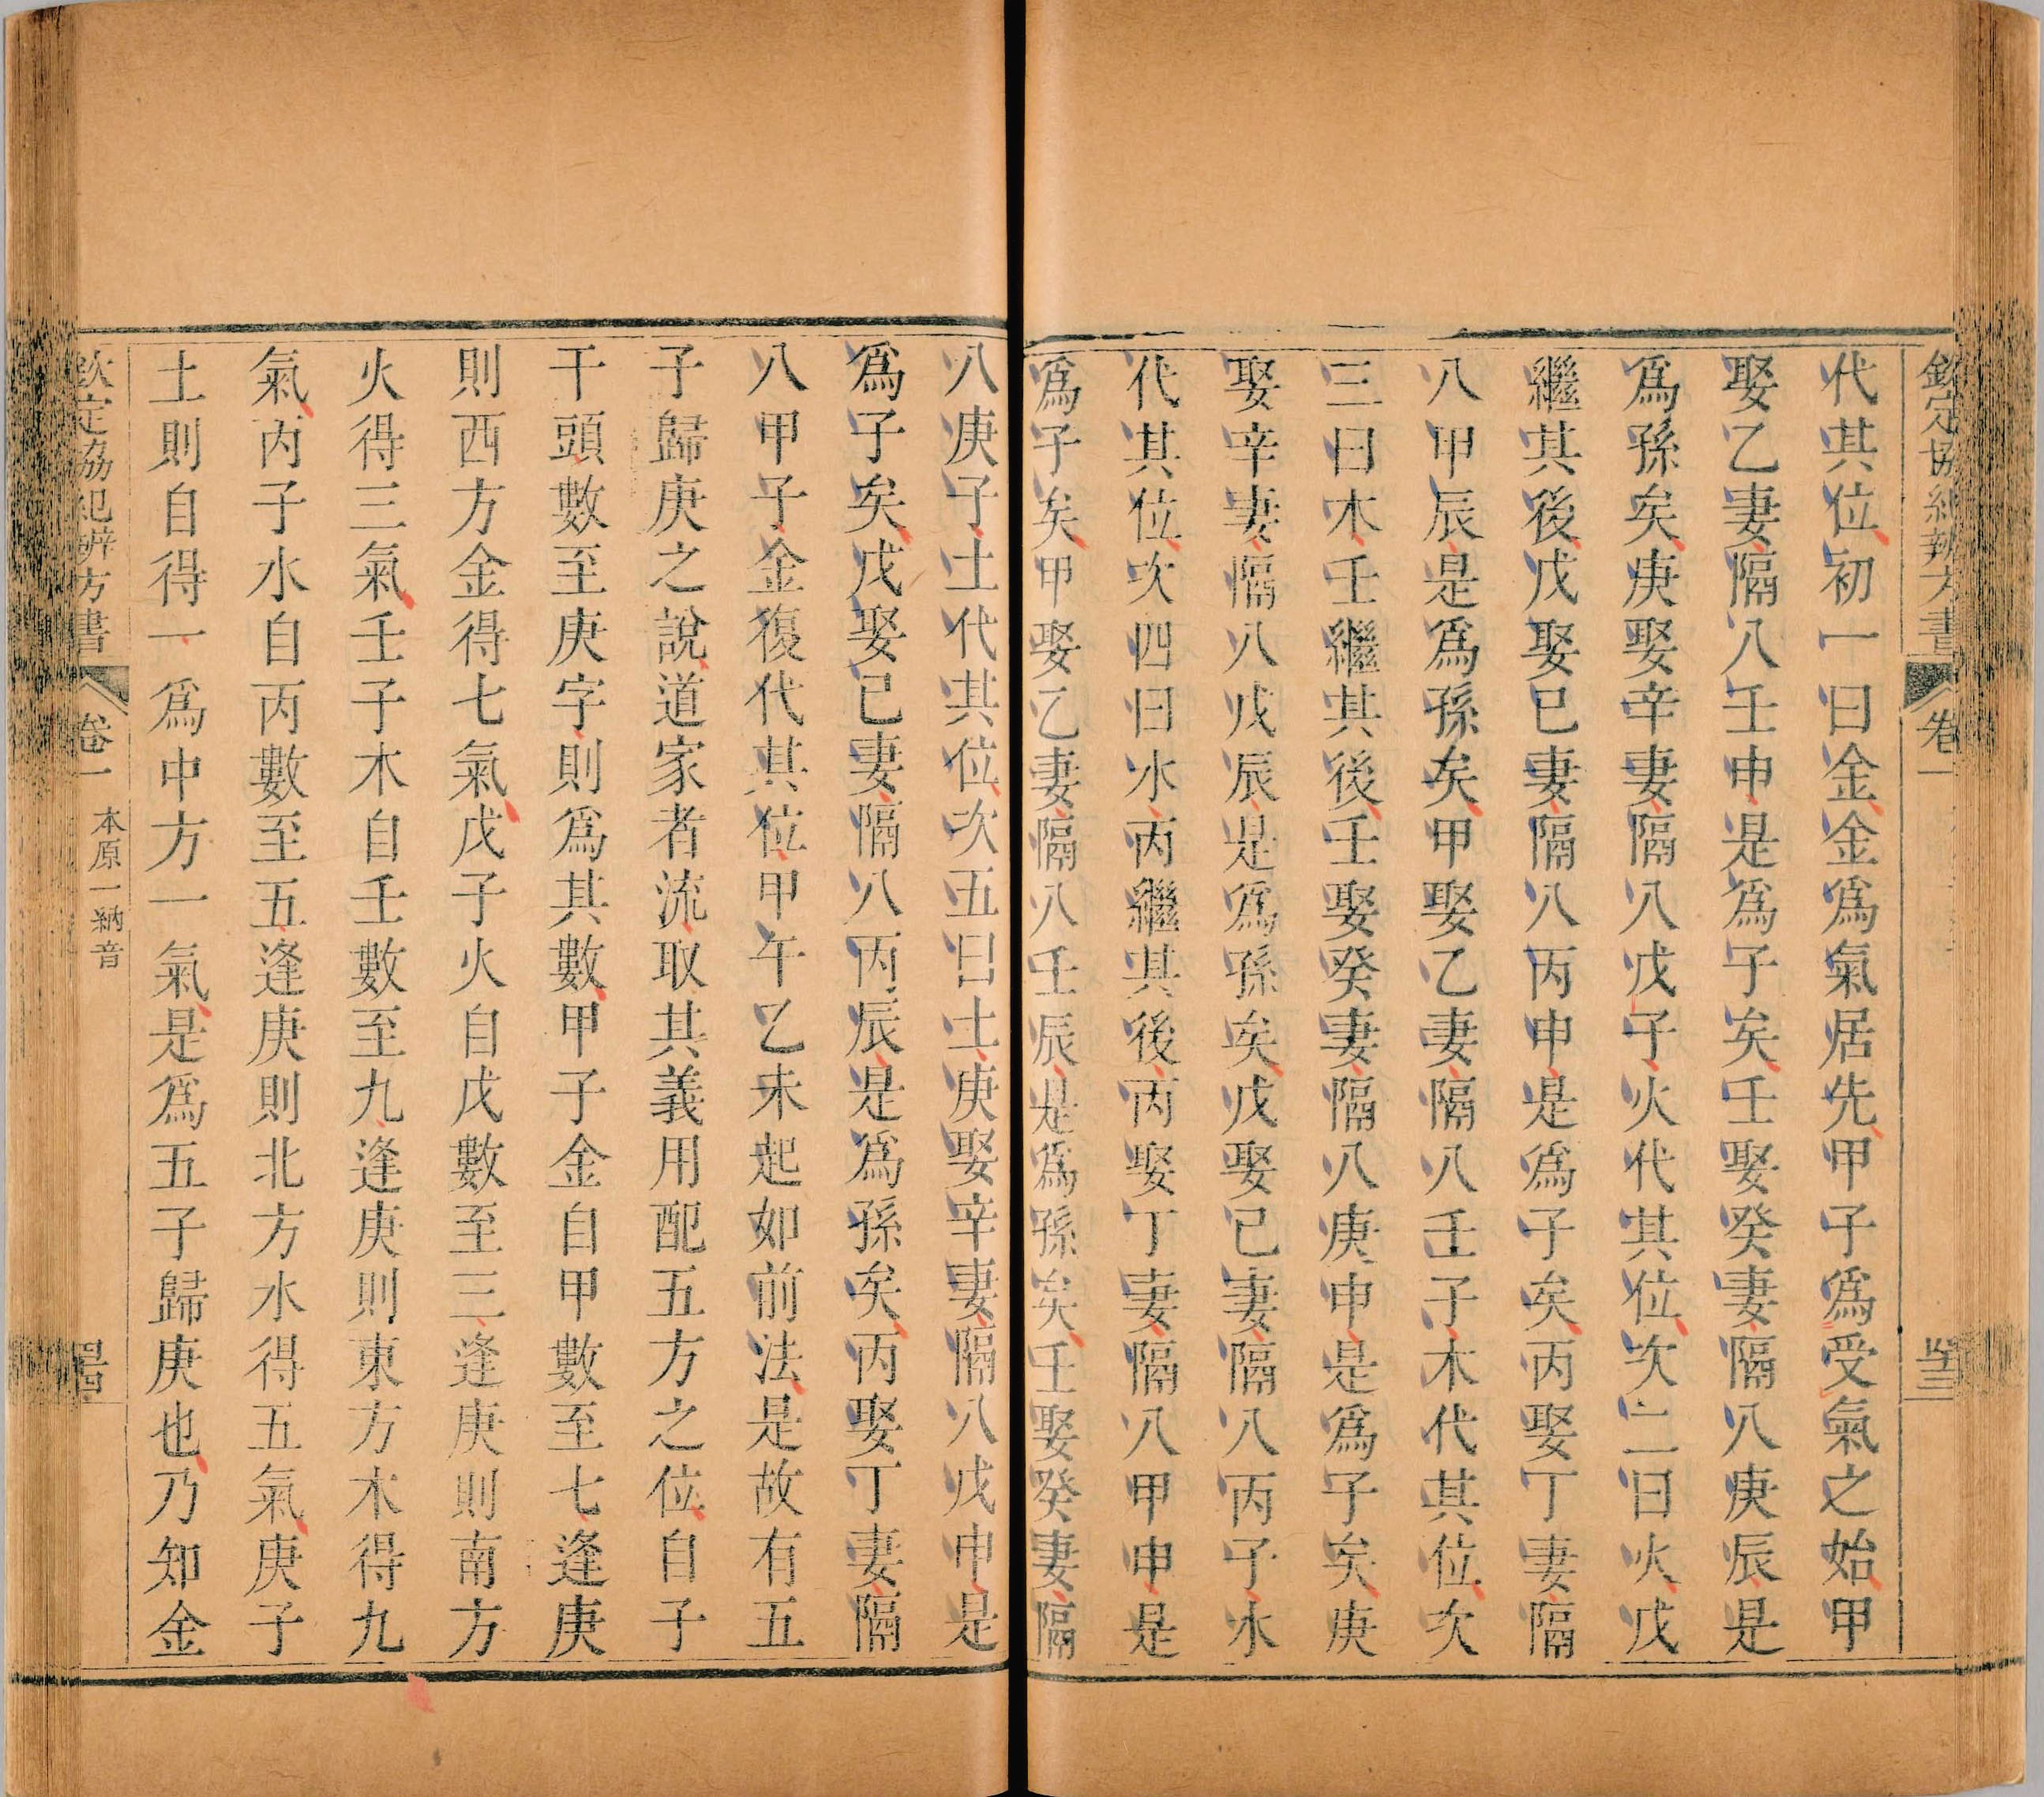 欽定協紀辨方書 卷一
代其位初一曰金金爲氣居先甲子爲受氣之始甲
娶乙妻隔八壬申是爲子矣壬娶癸妻隔八庚辰是
爲孫矣庚娶辛妻隔八戊子火代其位次二曰火戊
繼其後戊娶已妻隔八丙申是爲子矣丙娶丁妻隔
八甲辰是爲孫矣甲娶乙妻隔八壬子木代其位次
三曰木壬繼其後壬娶癸妻隔八庚申是爲子矣庚
娶辛妻隔八戊辰是爲孫矣戊娶已妻隔八丙子水
代其位次四曰水丙繼其後丙娶丁妻隔八甲申是
爲子矣甲娶乙妻隔八壬辰是爲孫矣壬娶癸妻隔
八庚子土代其位次五曰土庚娶辛妻隔八戊申是
爲子矣戊娶已妻隔八丙辰是爲孫矣丙娶丁妻隔
八甲子金復代其位甲午乙未起如前法是故有五
子歸庚之說道家者流取其義用配五方之位自子
干頭數至庚字則爲其數甲子金自甲數至七逢庚
則西方金得七氣戊子火自戊數至三逢庚則南方
火得三氣壬子木自壬數至九逢庚則東方木得九
氣丙子水自丙數至五逢庚則北方水得五氣庚子
土則自得一爲中方一氣是爲五子歸庚也乃知金
欽定協紀辨方書 卷一 本原一納音